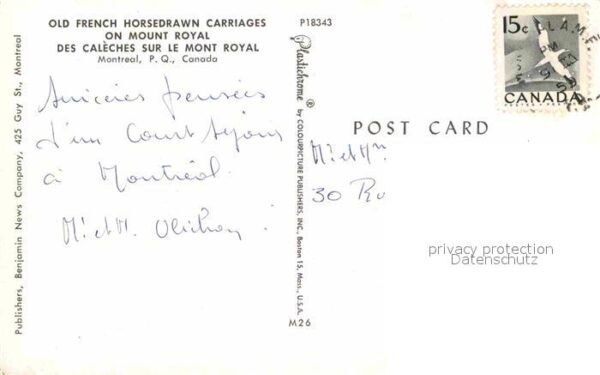 OLD FRENCH HORSEDRAWN CARRIAGES
ON MOUNT ROYAL
DES CALÈCHES SUR LE MONT ROYAL
Montreal, P. Q., Canada
Publishers, Benjamin News Company, 425 Guy St., Montreal
pensées
d'un court séjour
à Montréal.
Mr et M.
P18343
Plastichrome ®
by COLOURPICTURE PUBLISHERS, INC., Boston 15, Mass., U.S.A.
M26
POST CARD
Mr et Mm
30 Ru
15c
CANADA
PM
privacy protection
Datenschutz